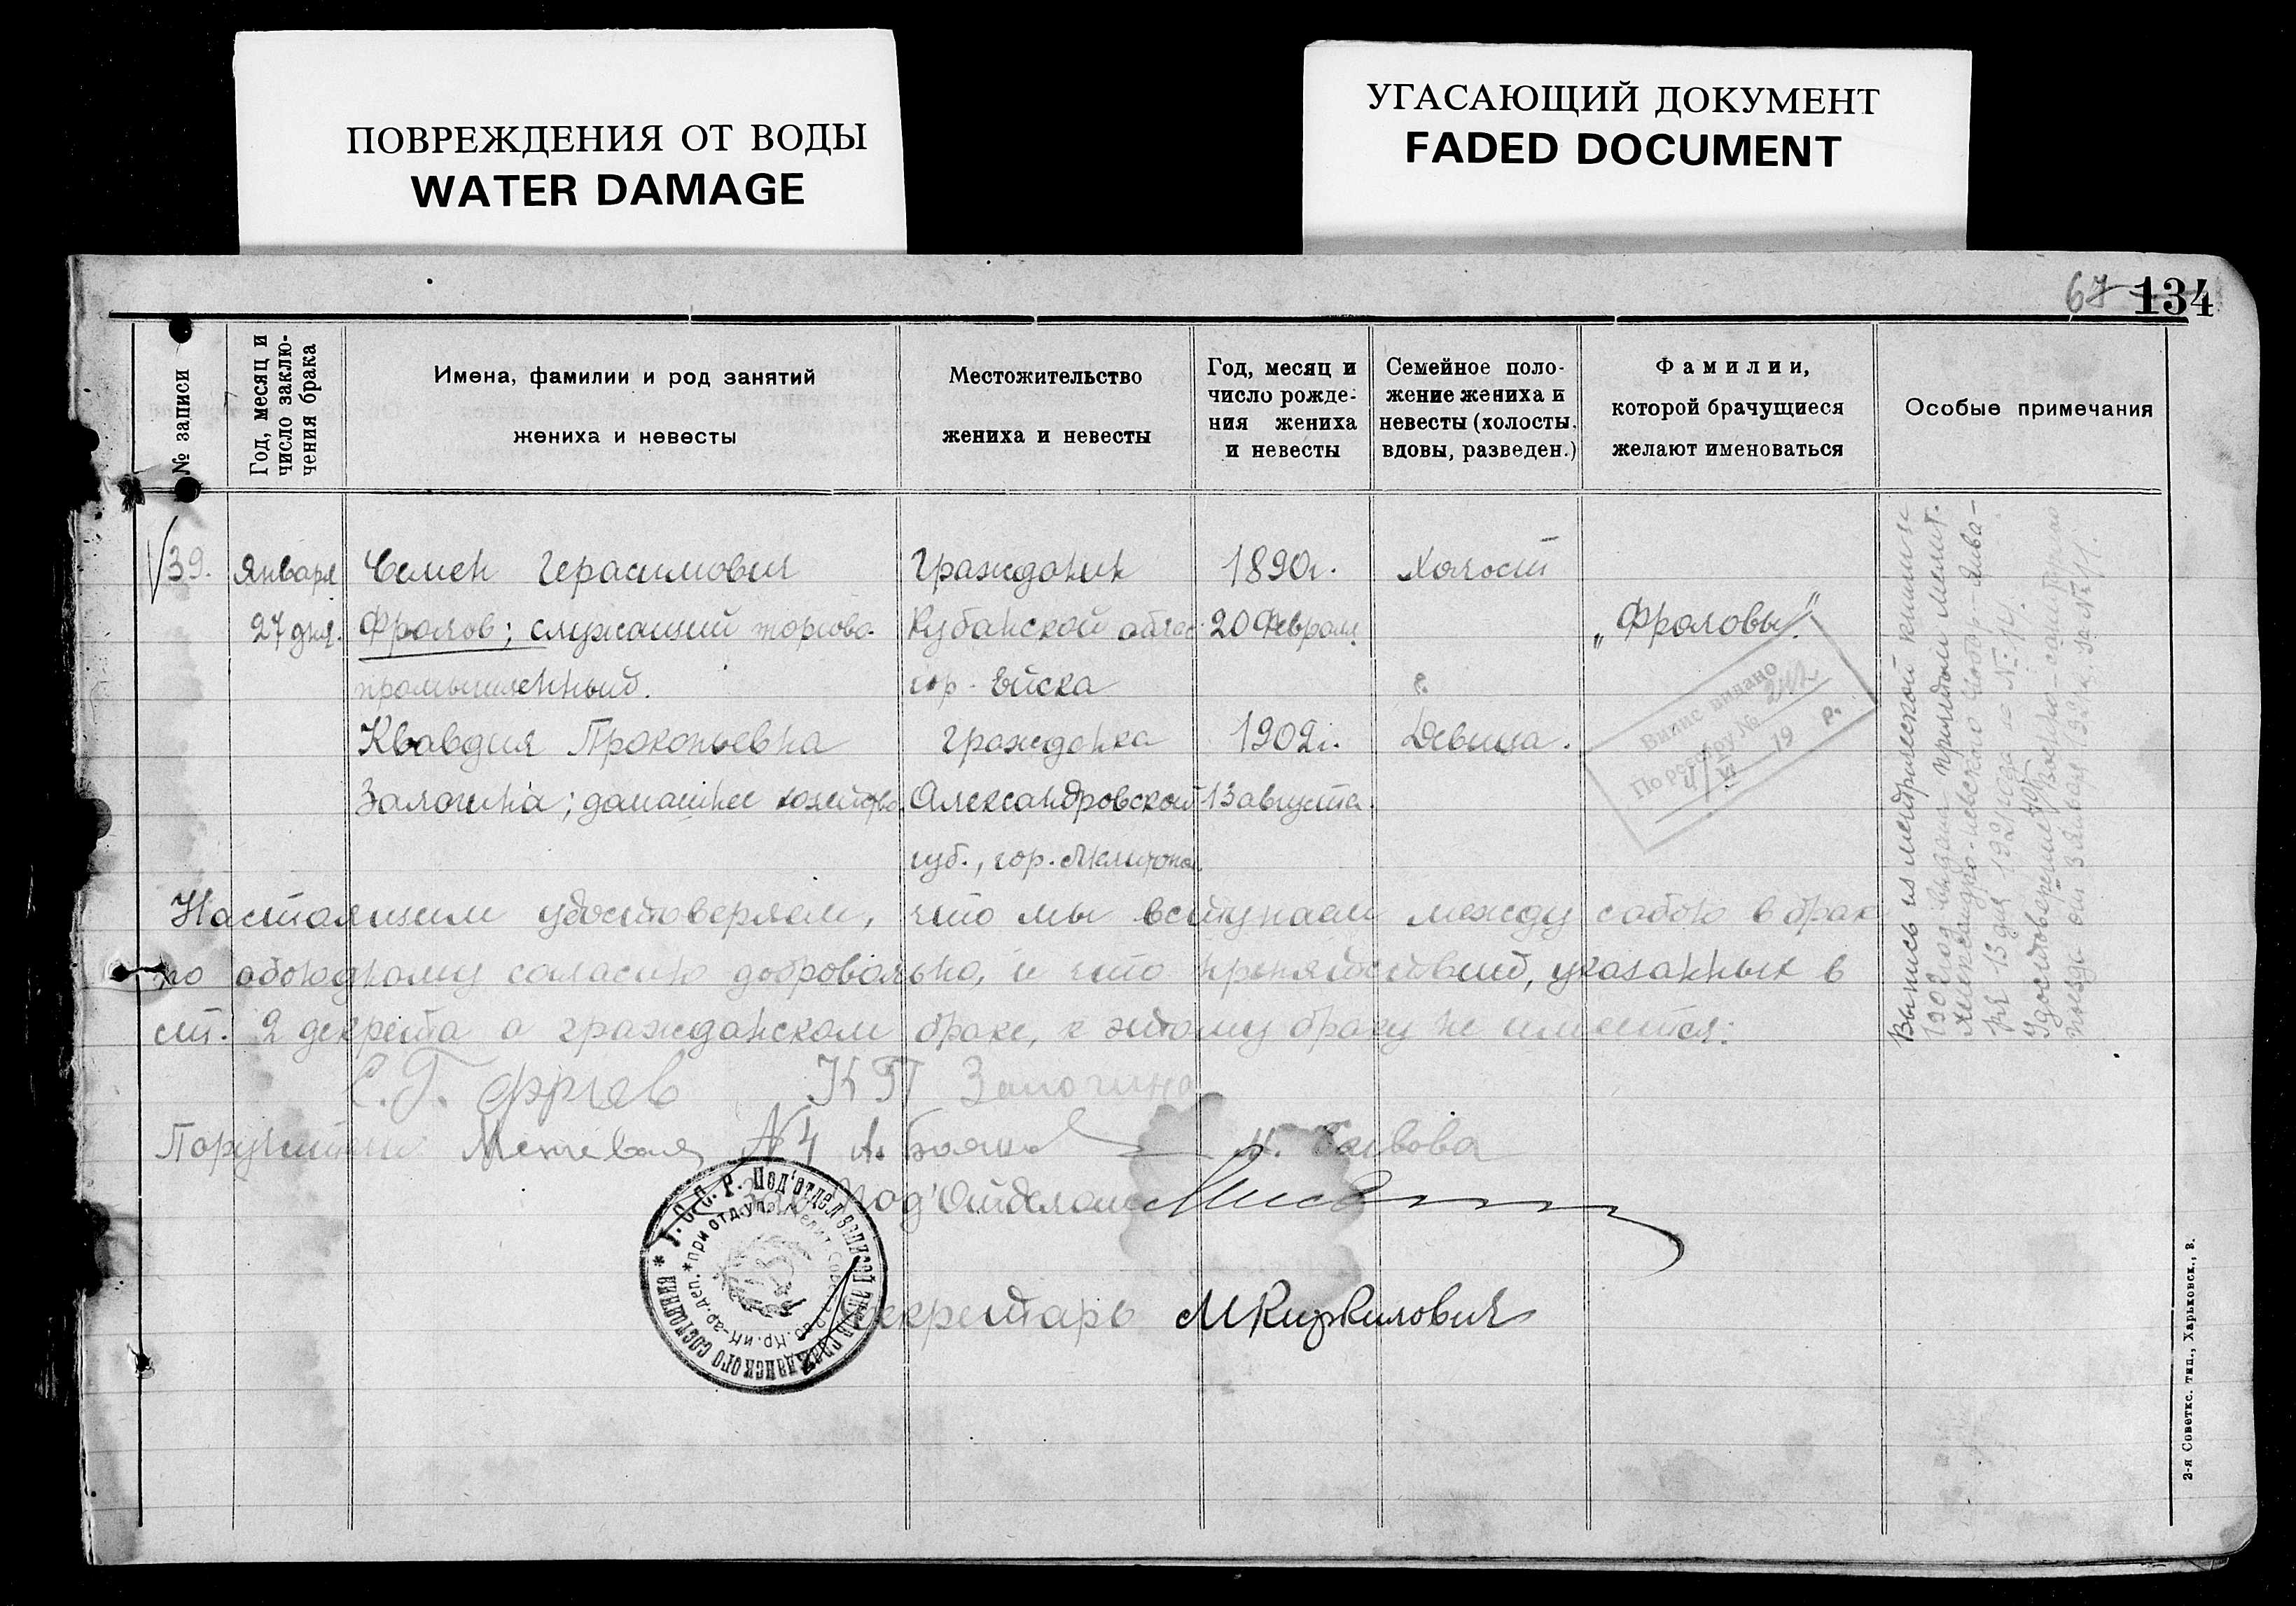 ПОВРЕЖДЕНИЯ ОТ ВОДЫ
WATER DAMAGE
УГАСАЮЩИЙ ДОКУМЕНТ
FADED DOCUMENT
67 134
№ записи
Год, месяц и
число заклю-
чения брака
Имена, фамилии и род занятий
жениха и невесты
Местожительство
жениха и невесты
Год, месяц и
число рожде-
ния жениха
и невесты
Семейное поло-
жение жениха и
невесты (холосты,
вдовы, разведен.)
Фамилии,
которой брачущиеся
желают именоваться
Особые примечания
39.
Января
27 дня.
Семен Герасимович
Фролов; служащий торгово-
промышленный.
Клавдия Прокопьевна
Залогина; домашнее хозяйство.
Гражданин
Кубанской облас.
гор. Ейска
гражданка
Александровской
губ., гор. Мелитопол.
1890г.
20 Февраля
1902г.
13 августа.
Холост
Девица.
„Фроловы“.
Випис видано
По реєстру №
19 р.
Выпись из метрической книги за
1902 год выдана причтом Мелит.
Александро-Невского Собора Янва-
ря 13 дня 1921 года за №
Удостоверение
поезда от 3 января 1921 г. за №
Настоящим удостоверяем, что мы вступаем между собою в брак
по обоюдному согласию добровольно, и что препятствий, указанных в
ст. 2 декрета о гражданском браке, к этому браку не имеется:
С. Г. Фролов К П Залогина
Поручители
Под'Отделом
У.С.С.Р. Под'отдел записей актов гражданского состояния
при отд. упр. Мелит. Совета раб. кр. и кр-ар. деп.
Секретарь МКиркилович
2-я Советкс. тип., Харьковск., 3.